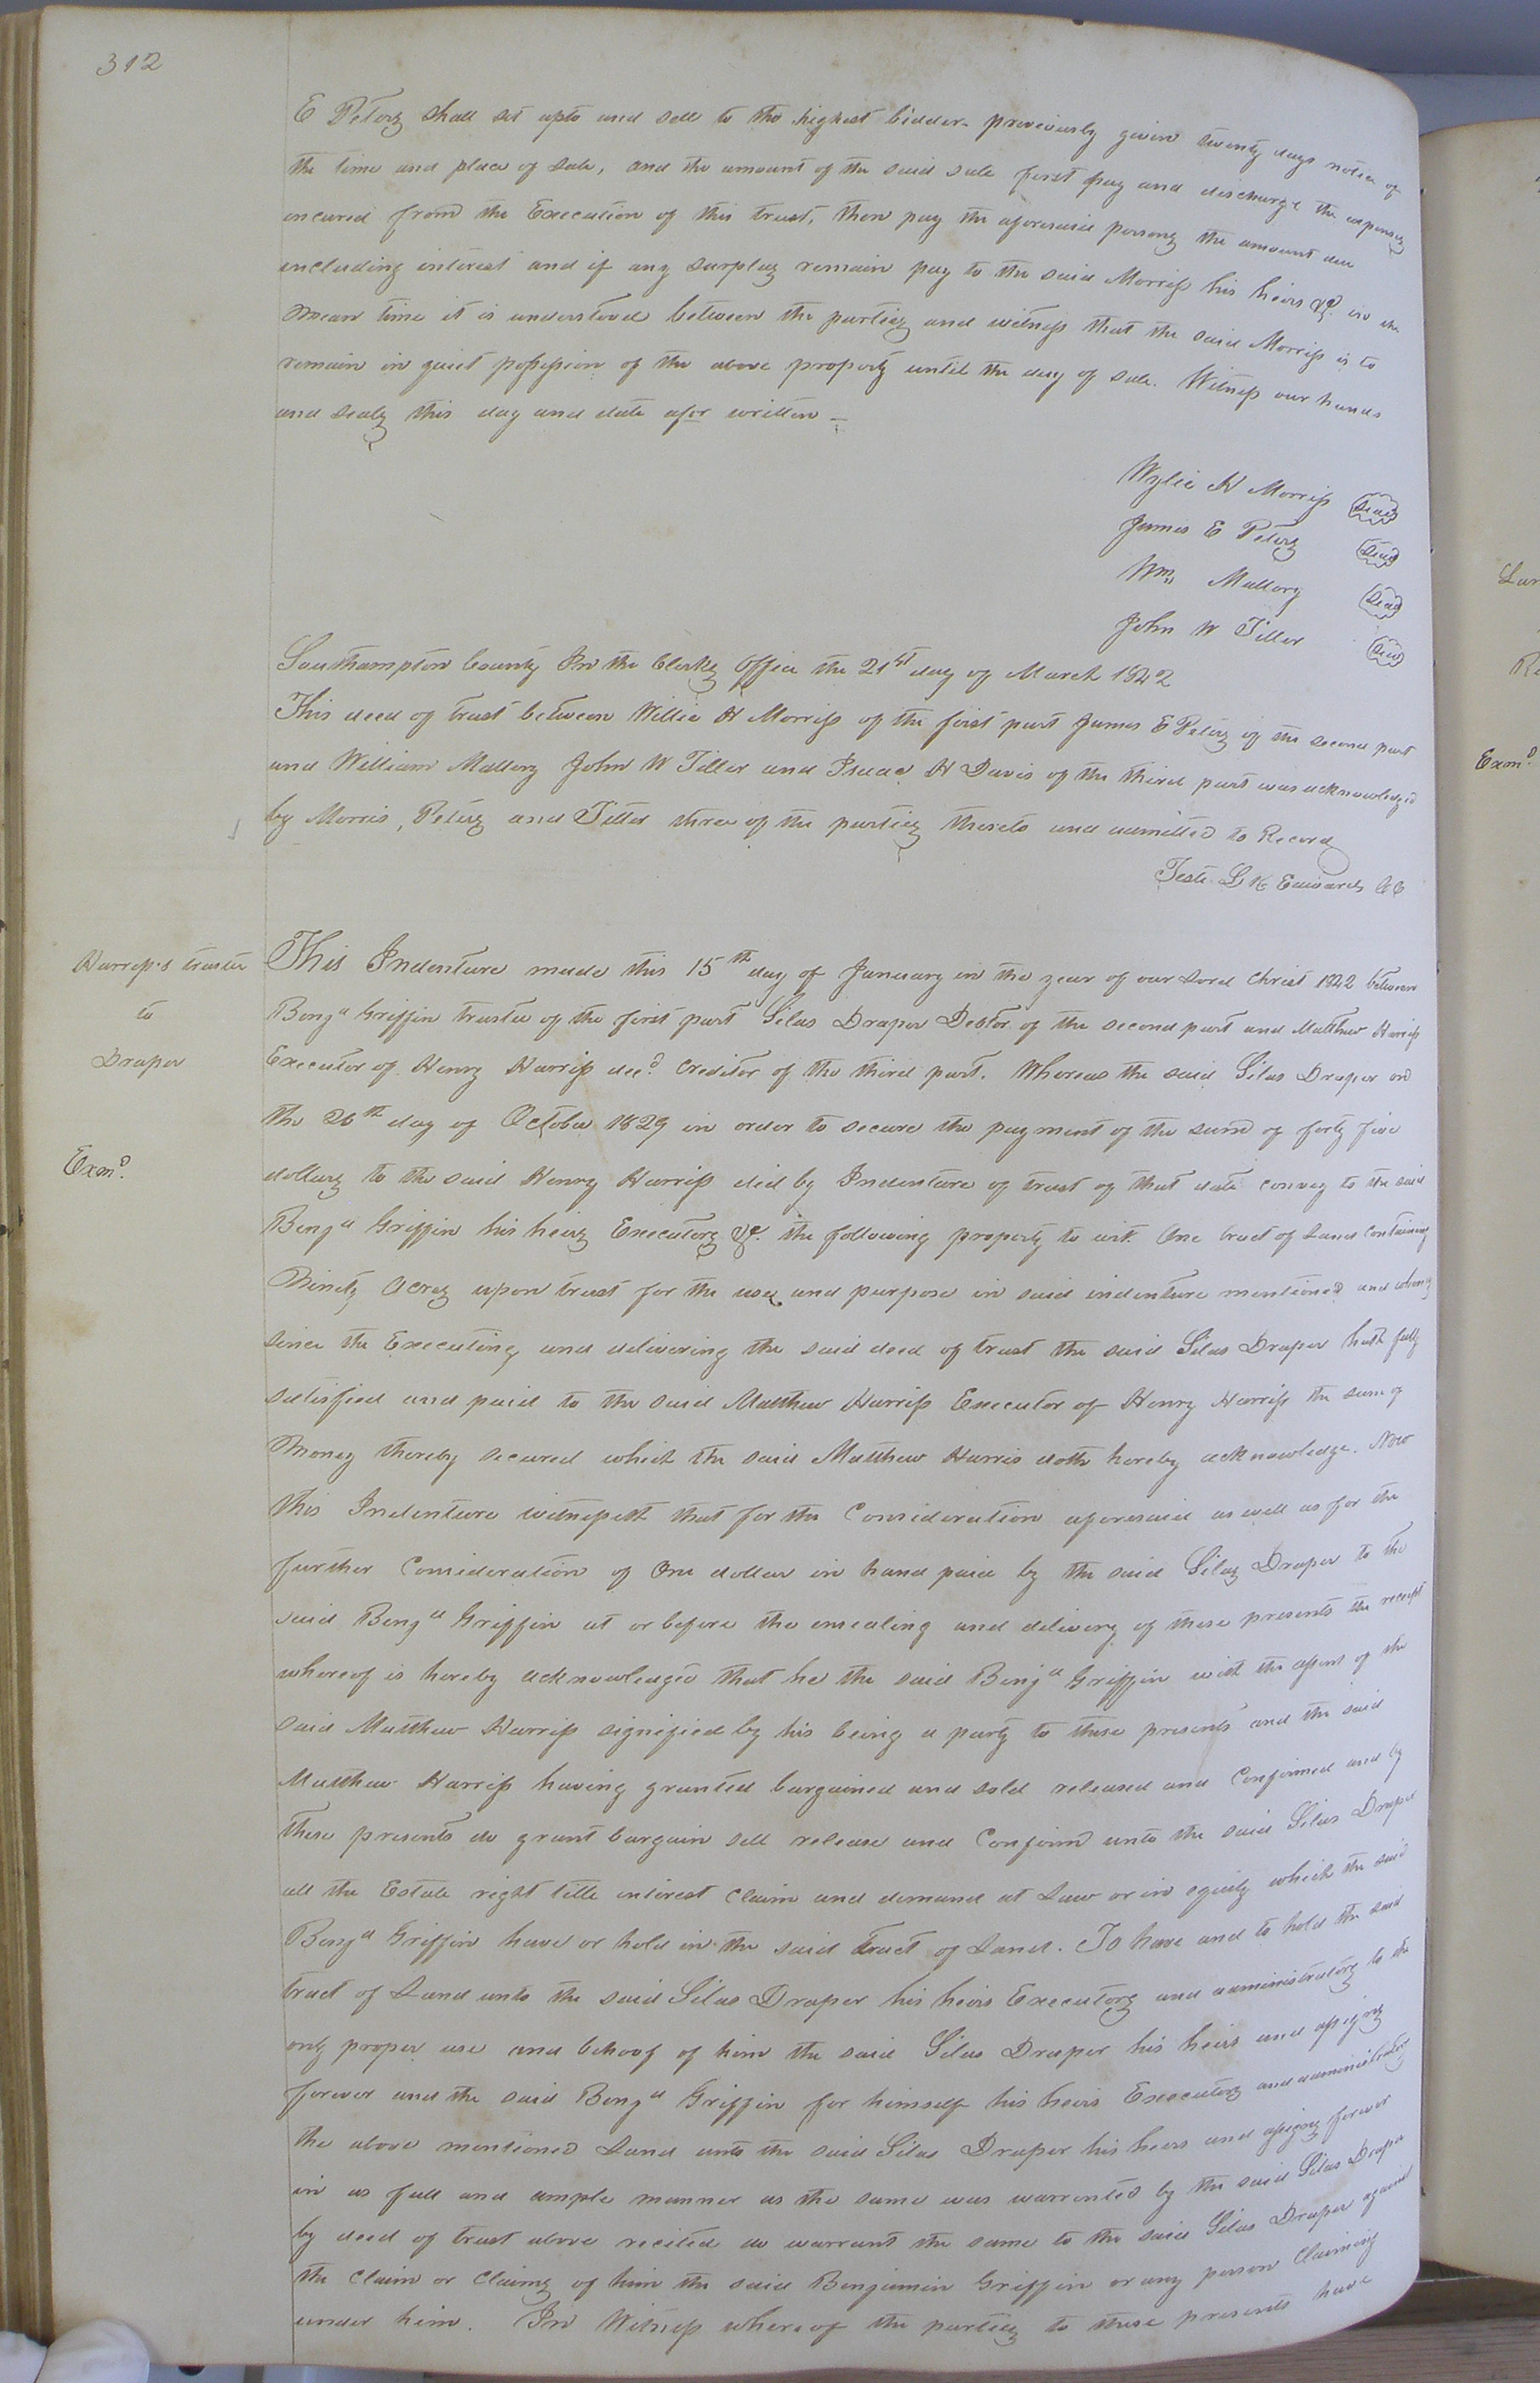 312
E Peters shall set upto and sell to the highest bidder previously given twenty days notice of
the time and place of sale, and the amount of the said sale first pay and discharge the expenses
incured from the Execution of this trust, then pay the aforesaid persons the amount due
including interest and if any surplus remain pay to the said Morriss his heirs &c. in the
mean time it is understood between the parties and witness that the said Morriss is to
remain in quiet possession of the above property until the day of sale. Witness our hands
and seals this day and date afor written
Wylie H Morriss Seal
James E Peters Seal
Wm Mallory Seal
John W Tiller Seal
Southampton County In the Clerks Office the 21st day of March 1842
This deed of trust between Willie H Morriss of the first part James E Peters of the second part
and William Mallory John W Tiller and Isaac H Davis of the third part was acknowledged
by Morris, Peters and Tiller three of the parties thereto and admitted to Record
Teste L R Edwards CC
Harriss's trustee
to
Draper
Exmd.
This Indenture made this 15th day of January in the year of our Lord Christ 1842 between
Benja Griffin trustee of the first part Silas Draper Debtor of the second part and Matthew Harriss
Executor of Henry Harriss decd. Creditor of the third part. Whereas the said Silas Draper on
the 26th day of October 1829 in order to secure the payment of the sum of forty five
dollars to the said Henry Harriss did by Indenture of trust of that date convey to the said
Benja Griffin his heirs Executors &c. the following property to wit. One tract of Land containing
Ninety Acres upon trust for the uses and purpose in said indenture mentioned and whereas
since the Executing and delivering the said deed of trust the said Silas Draper hath fully
satisfied and paid to the said Matthew Harriss Executor of Henry Harriss the sum of
Money thereby secured which the said Matthew Harris doth hereby acknowledge. Now
this Indenture witnesseth that for the Consideration aforesaid as well as for the
further Consideration of One dollar in hand paid by the said Silas Draper to the
said Benja Griffin at or before the ensealing and delivery of these presents the receipt
whereof is hereby acknowledged that he the said Benja Griffin with the assent of the
said Matthew Harriss signified by his being a party to these presents and the said
Matthew Harriss having granted bargained and sold released and Confirmed and by
these presents do grant bargain sell release and Confirm unto the said Silas Draper
all the Estate right title interest claim and demand at Law or in equity which the said
Benja Griffin have or hold in the said tract of Land. To have and to hold the said
tract of Land unto the said Silas Draper his heirs Executors and administrators to the
only proper use and behoof of him the said Silas Draper his heirs and assigns
forever and the said Benja Griffin for himself his heirs Executors and administrators
the above mentioned Land unto the said Silas Draper his heirs and assigns forever
in as full and ample manner as the same was warrented by the said Silas Draper
by deed of trust above recited do warrant the same to the said Silas Draper against
the claim or claims of him the said Benjamin Griffin or any person Claiming
under him. In Witness whereof the parties to these presents have
Exmd.